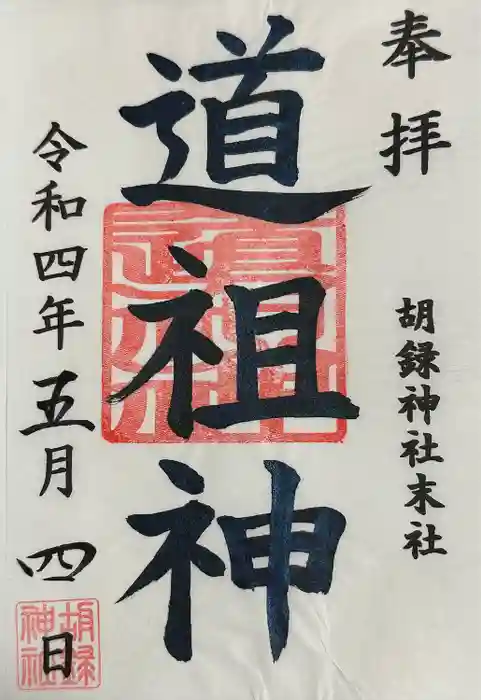 奉拝
胡録神社末社
道祖神
令和四年五月四日
胡録神社